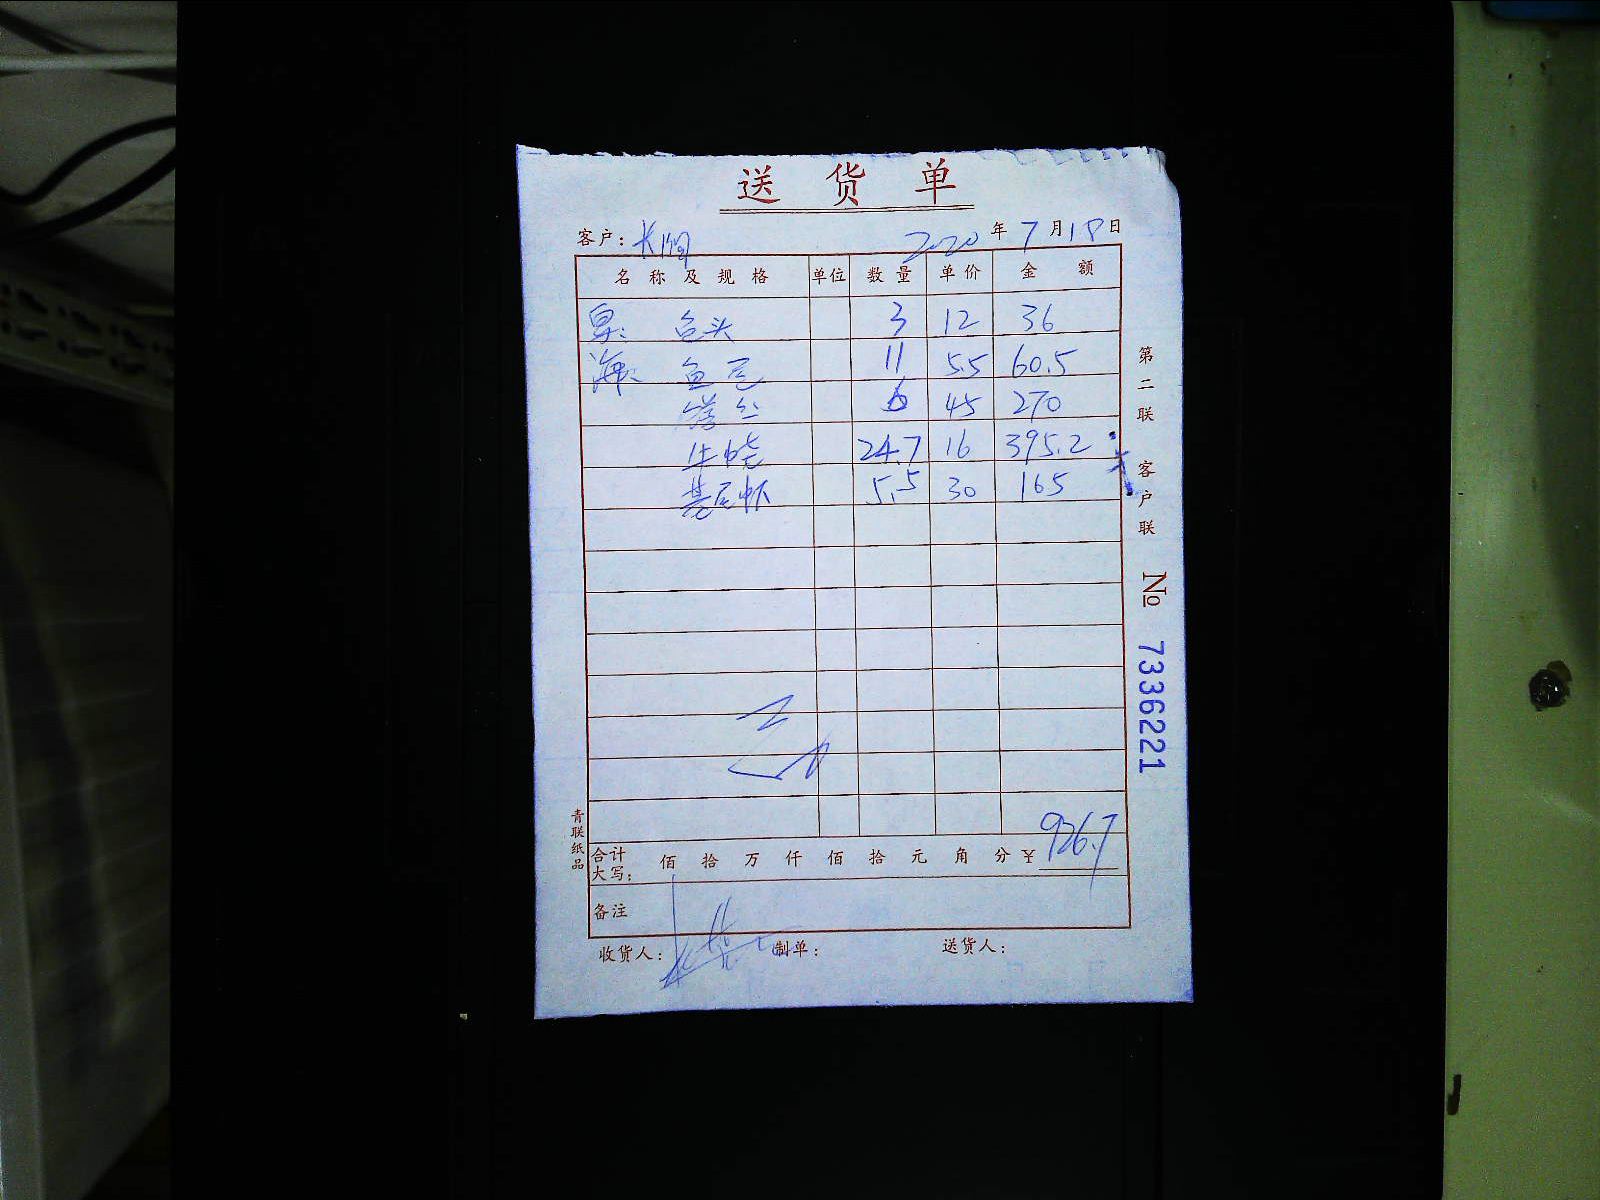 送货单
客户: 2020年7月18日
名称及规格 单位 数量 单价 金额
鱼头 3 12 36
海: 鱼尾 11 5.5 60.5
6 45 270
牛蛙 24.7 16 395.2
基尾虾 5.5 30 165
926.7
合计大写: 佰 拾 万 仟 佰 拾 元 角 分 ¥
备注
收货人: 制单: 送货人:
第二联 客户联
№ 7336221
青联纸品